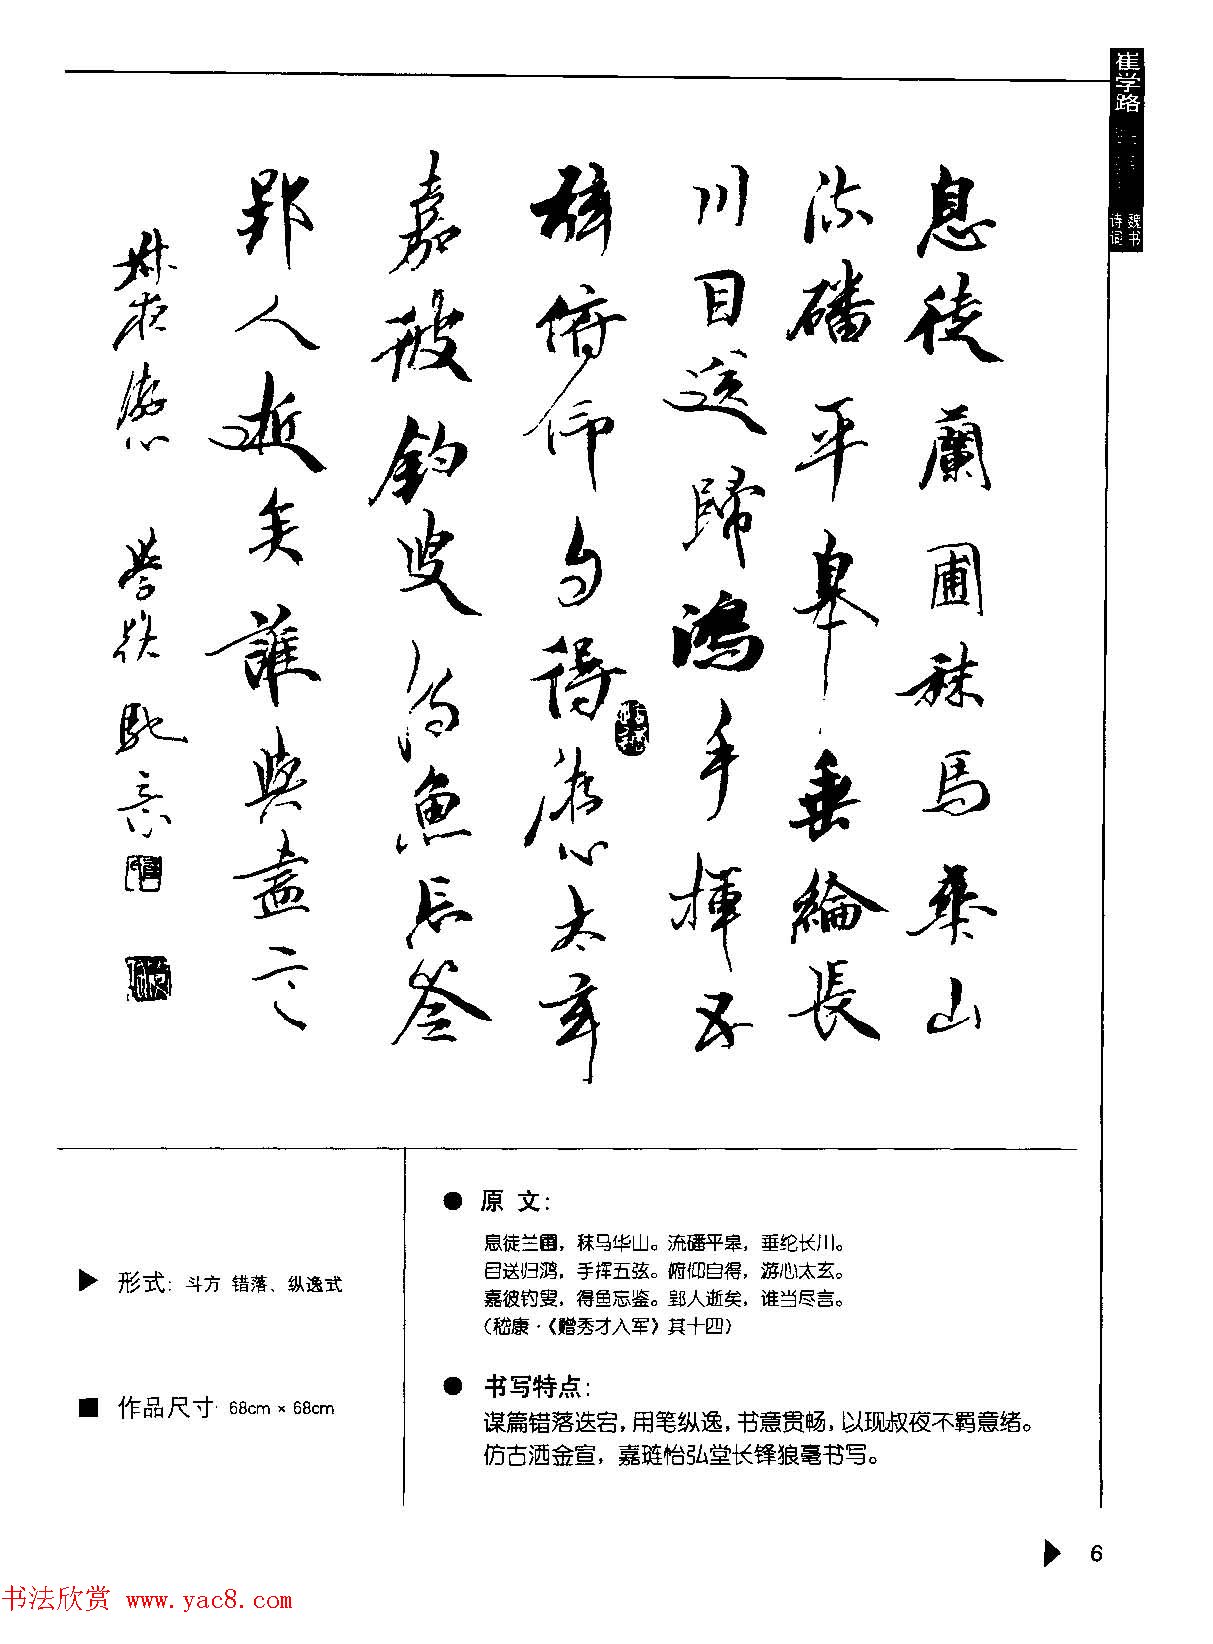 崔学路
魏书
诗词
息徒蘭圃秣馬華山
流磻平皋垂綸長
川目送歸鴻手揮五
弦俯仰自得游心太玄
嘉彼釣叟得魚忘筌
郢人逝矣誰與盡言
叔夜 學路馳意
形式: 斗方 错落、纵逸式
作品尺寸· 68cm × 68cm
原 文:
息徒兰圃，秣马华山。流磻平皋，垂纶长川。
目送归鸿，手挥五弦。俯仰自得，游心太玄。
嘉彼钓叟，得鱼忘鉴。郢人逝矣，谁当尽言。
(嵇康·《赠秀才入军》其十四)
书写特点:
谋篇错落迭宕,用笔纵逸,书意贯畅,以现叔夜不羁意绪。
仿古洒金宣，嘉琏怡弘堂长锋狼毫书写。
6
书法欣赏 www.yac8.com